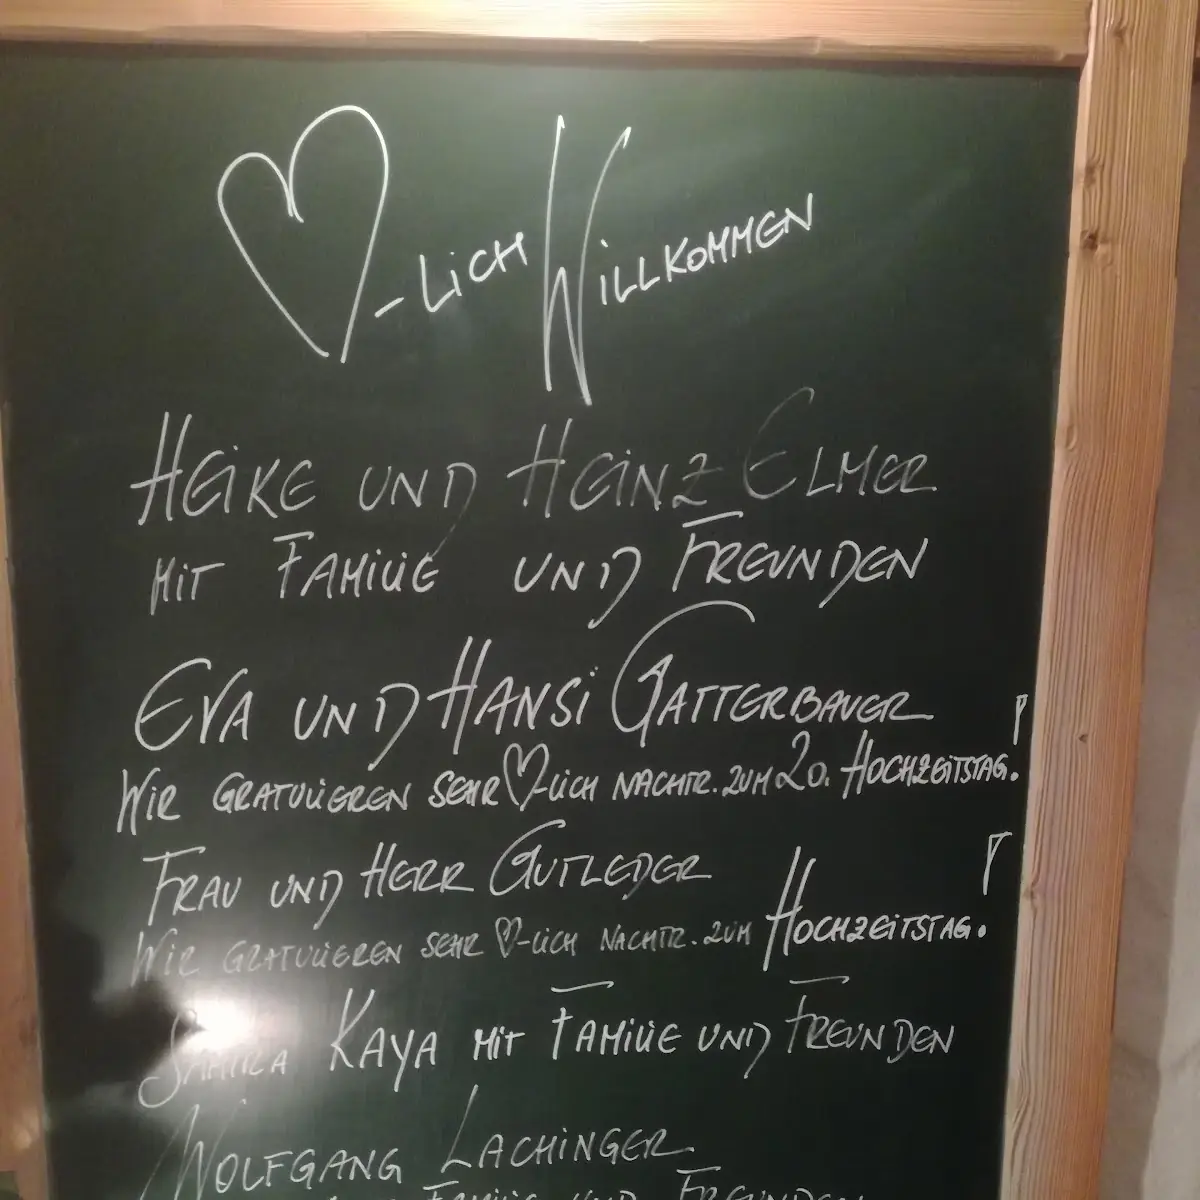 ♡-lich Willkommen
Heike und Heinz Elmer
mit Familie und Freunden
Eva und Hansi Gatterbauer
Wir gratulieren sehr ♡-lich nachtr. zum 20. Hochzeitstag!
Frau und Herr Gutleder
Wir gratulieren sehr ♡-lich nachtr. zum Hochzeitstag!
Samira Kaya mit Familie und Freunden
Wolfgang Lachinger
Familie und Freunden